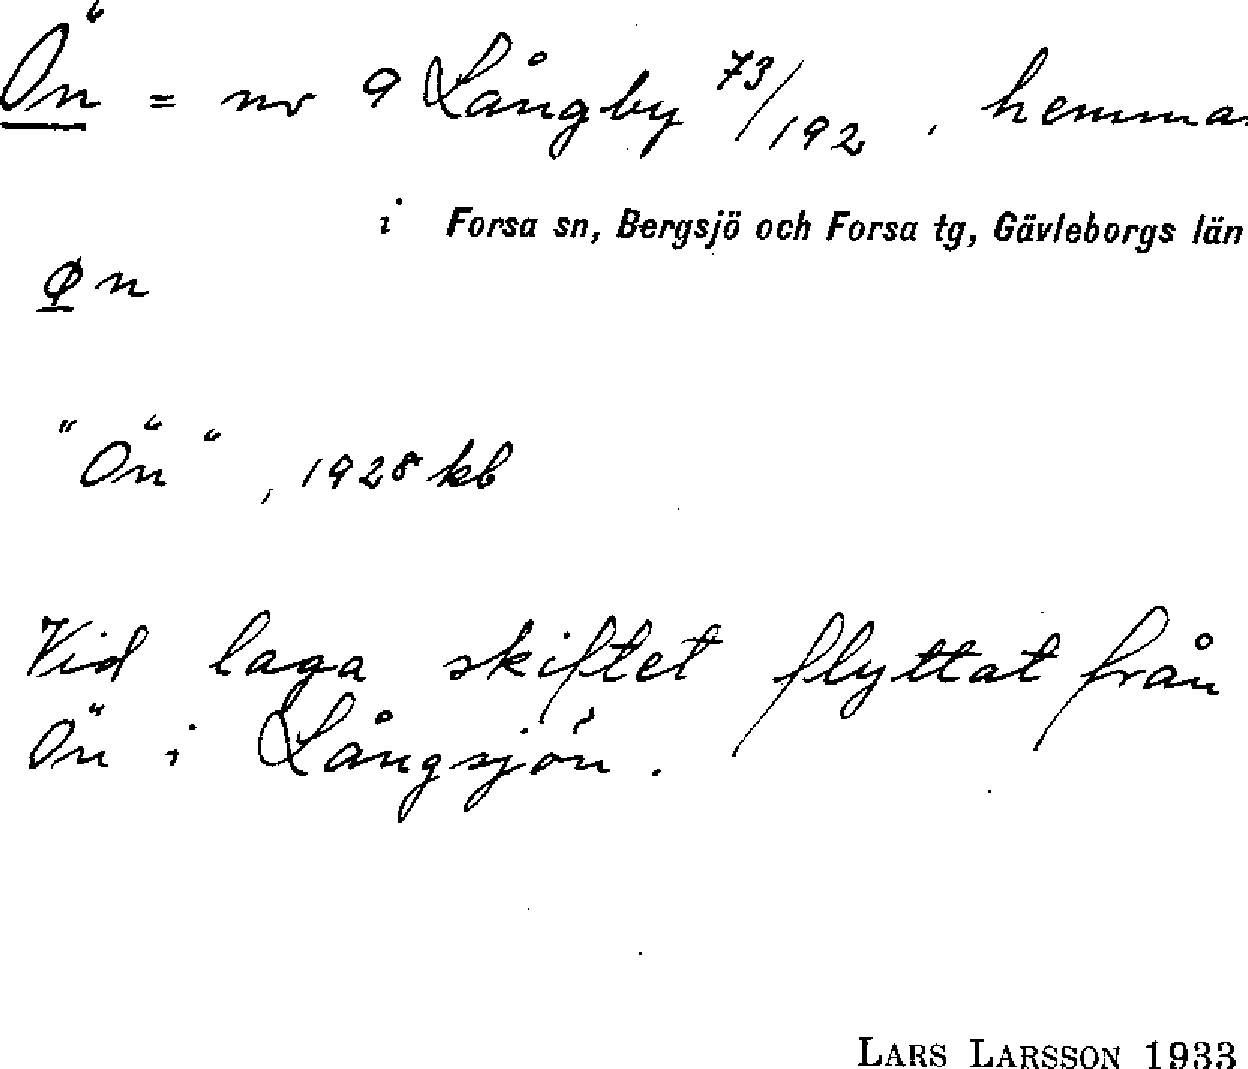 Ön = nr 9 Långby 73/192, hemma
i Forsa sn, Bergsjö och Forsa tg, Gävleborgs län
øn
"Ön", 1928 kb
Vid laga skiftet flyttat från
Ön i Långsjön.
LARS LARSSON 1933